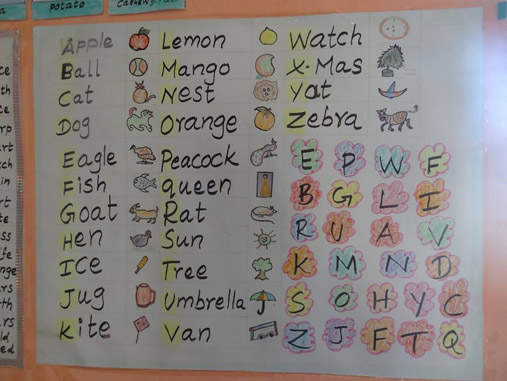 Potato
Apple
Ball
Cat
Dog
Eagle
Fish
Goat
Hen
Ice
Jug
Kite
Lemon
Mango
Nest
Orange
Peacock
queen
Rat
Sun
Tree
Umbrella
Van
Watch
X-Mas
Yat
Zebra
E P W F
B G L I
R U A V
K M N D
S O H Y C
Z J F T Q